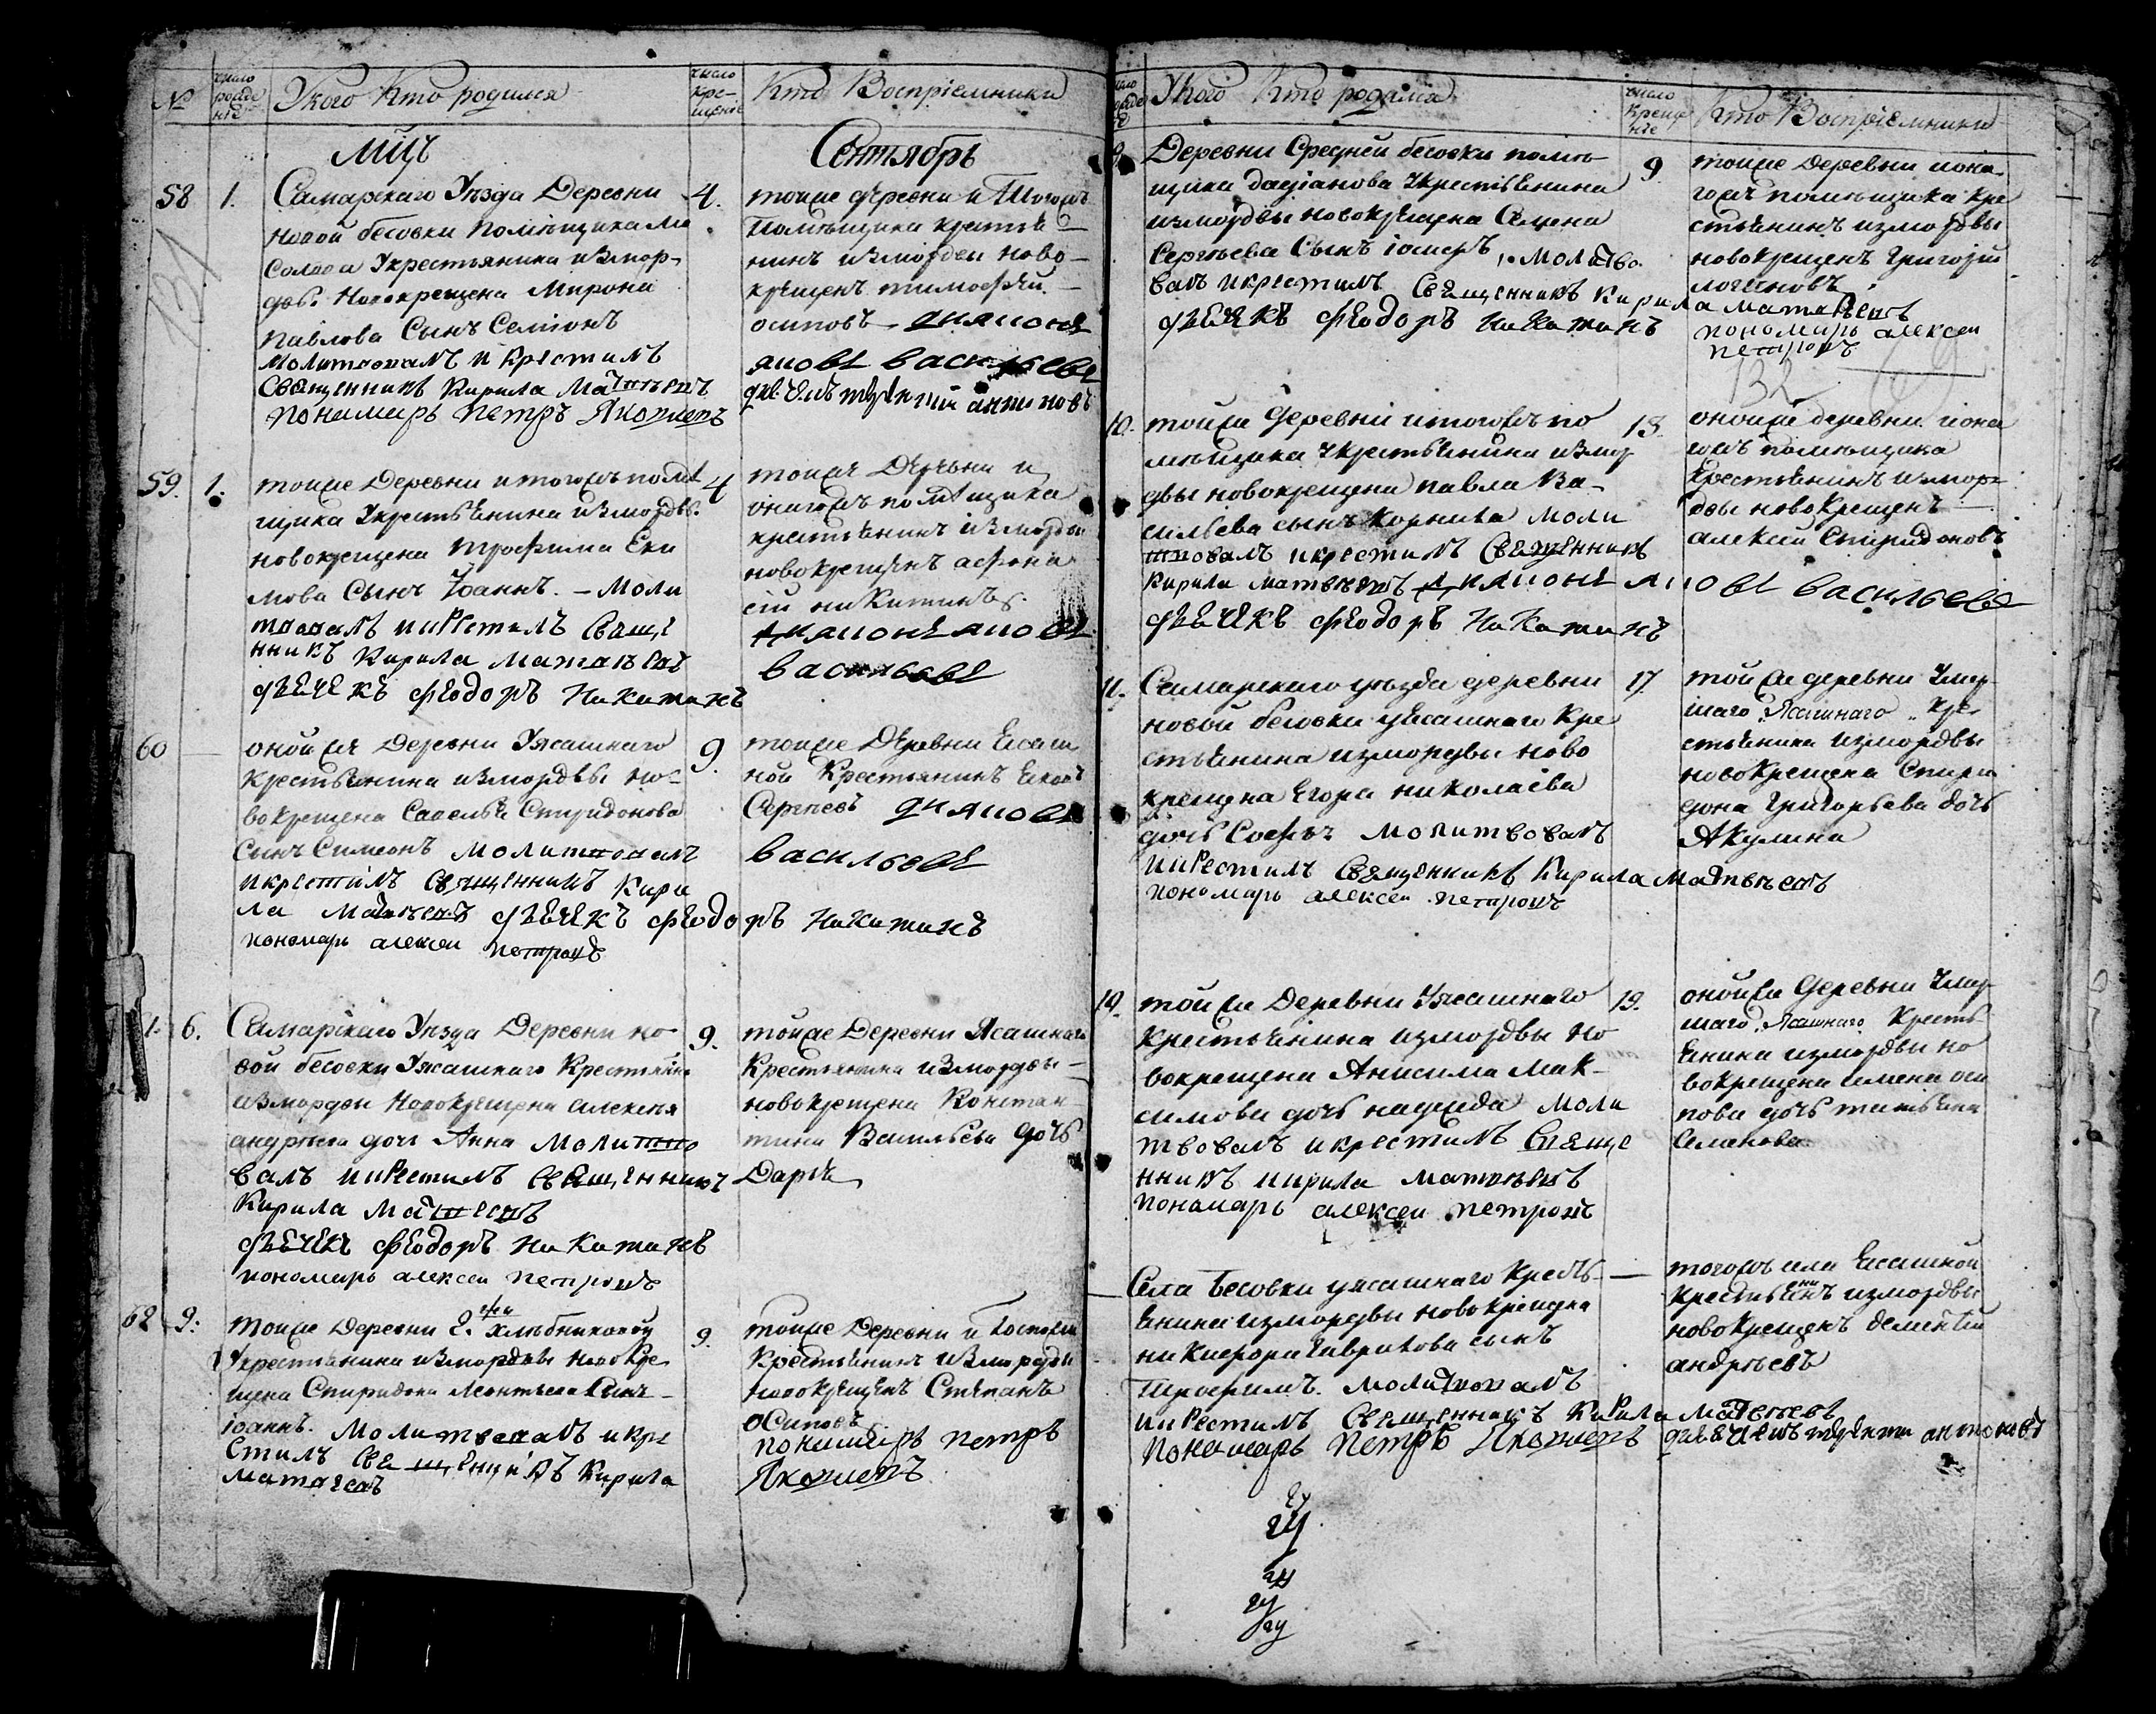 №
число рожденіе
Укого Кто родился
число крещеніе
Кто Воспріемники
мцъ
Сентябрь
58
1.
Самарскаго Уѣзда Деревни
новой бесовки помѣщика
Укрестьянина измор-
двы Новокрещена Мирона
Павлова Сынъ Семіонъ
молитвовалъ и крестилъ
Священникъ Кирила Матвѣевъ
пономарь петръ Яковлевъ
4.
тоиже деревни и тогожъ
Помѣщика крестья-
нинъ измордвы ново-
крещенъ тимофеи
осиповъ диаконъ
васильевъ
терентіи антоновъ
131
59.
1.
тоиже Деревни и тогожъ помѣ
щика Укрестьянина измордвы
новокрещена трофима Еки
мова Сынъ Іоаннъ. – моли
твовалъ икрестилъ Свяще
нникъ Кирила Матвѣевъ
дьячекъ феодоръ Никитинъ
4
тоиже Деревни и
оногожъ помѣщика
крестьянинъ измордвы
новокрещенъ афона
сіи никитинъ
васильевъ
60
—
оноиже Деревни Уясашнаго
крестьянина измордвы но-
вокрещена Савелья Спиридонова
Сынъ Симеонъ молитвовалъ
икрестилъ священникъ Кири
ла Матвѣевъ дьячекъ феодоръ Никитинъ
пономарь алексеи петровъ
9.
тоиже Деревни Ясаш
нои Крестьянинъ
Сергеевъ
васильевъ
1.
6.
Самарскаго Уѣзда Деревни но
вой бесовки Уясашнаго Крестьянина
измордвы Новокрещена алексѣя
андрѣева дочь Анна молитво
валъ икрестилъ священникъ
Кирила Матвѣевъ
дьячекъ феодоръ Никитинъ
пономарь алексеи петровъ
9.
тоиже Деревни Ясашнаго
Крестьянина измордвы –
новокрещена Констан
тина Васильева дочь
Дарья
62
9.
тоиже Деревни Г. Хлѣбниковой
Укрестьянина измордвы новокре
щена Спиридона Леонтьева Сынъ
іоаннъ. Молитвовалъ икре
стилъ священникъ Кирила
Матвѣевъ
9.
тоиже Деревни и Госпожи
Крестьянинъ измордвы
новокрещенъ Степанъ
Осиповъ
пономарь петръ
Яковлевъ
Укого Кто родился
число крещеніе
Кто Воспріемники
9.
Деревни Средней бесовки помѣ
щика дадіанова Укрестьянина
измордвы новокрещена Семена
Сергѣева Сынъ іосифъ, молитво
валъ икрестилъ Священникъ Кирила матвѣевъ
дьячекъ феодоръ Никитинъ
9.
тоиже Деревни иона
гожъ помѣщика кре
стьянинъ измордвы
новокрещенъ Григоріи
логиновъ
пономарь алексеи
петровъ
132
10.
тоиже деревни итогожъ по
мѣщика Укрестьянина измор
двы новокрещена павла Ва-
сильева сынъ Корнила моли
твовалъ икрестилъ Священникъ
Кирила матвѣевъ васильевъ
дьячекъ феодоръ Никитинъ
13.
оноиже деревни иона
гожъ помѣщика
Крестьянинъ измор-
двы новокрещенъ –
алексѣи Спиридоновъ
11.
Самарскаго уѣзда деревни
новой бесовки уясашнаго кре
стьянина измордвы ново
крещена Егора николаева
дочь Софья молитвовалъ
икрестилъ Священникъ Кирила Матвѣевъ
пономарь алексеи петровъ
17.
тоиже деревни Умер
шаго Ясашнаго кре-
стьянина измордвы
новокрещена Спири
дона Григорьева дочь
Акулина
19.
тоиже Деревни Уясашнаго
Крестьянина измордвы но
вокрещена Анисима Мак-
симова дочь надежда моли
твовалъ икрестилъ Свяще
нникъ кирила матвѣевъ
пономарь алексеи петровъ
19.
оноиже деревни Умер
шаго Ясашнаго Кресть
янина измордвы но
вокрещена семена оси
пова дочь татьяна
Семенова
—
Села бесовки уясашнаго Кресть-
янина измордвы новокрещена
никифора Гаврилова сынъ
Трофимъ. молитвовалъ
икрестилъ Священникъ Кирила Матвѣевъ
пономарь петръ Яковлевъ терентіи антоновъ
—
тогожъ села Ясашной
крестьянинъ измордвы
новокрещенъ дементіи
андрѣевъ